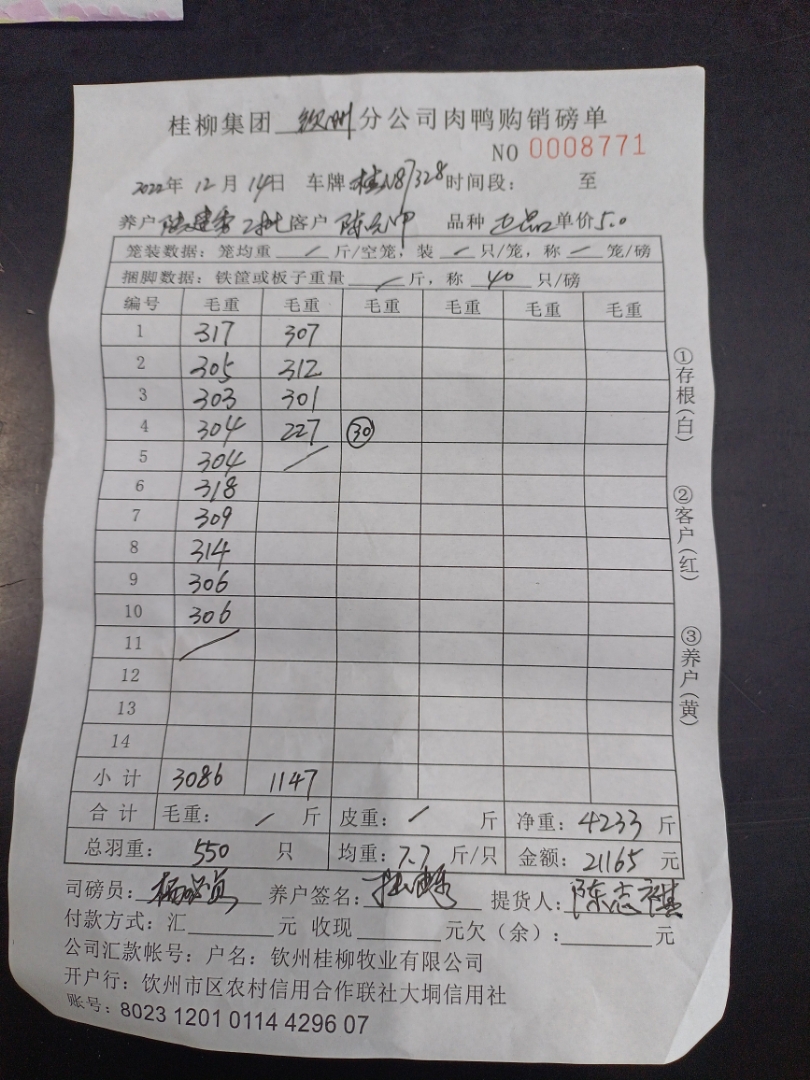 桂柳集团 钦州 分公司肉鸭购销磅单
NO 0008771
2022年 12月 14日 车牌 桂N87328 时间段: 至
养户 2批 客户 陈 品种 正品 单价 5.0
笼装数据: 笼均重 / 斤/空笼, 装 / 只/笼, 称 / 笼/磅
捆脚数据: 铁筐或板子重量 / 斤, 称 40 只/磅
编号 毛重 毛重 毛重 毛重 毛重 毛重
1 317 307
2 305 312
3 303 301
4 304 227 ㉚
5 304 /
6 318
7 309
8 314
9 306
10 306
11 /
12
13
14
小计 3086 1147
合计 毛重: / 斤 皮重: / 斤 净重: 4233 斤
总羽重: 550 只 均重: 7.7 斤/只 金额: 21165 元
司磅员: 养户签名: 提货人: 陈志祺
付款方式: 汇 元 收现 元欠(余): 元
公司汇款帐号: 户名: 钦州桂柳牧业有限公司
开户行: 饮州市区农村信用合作联社大垌信用社
账号: 8023 1201 0114 4296 07
①存根(白)
②客户(红)
③养户(黄)